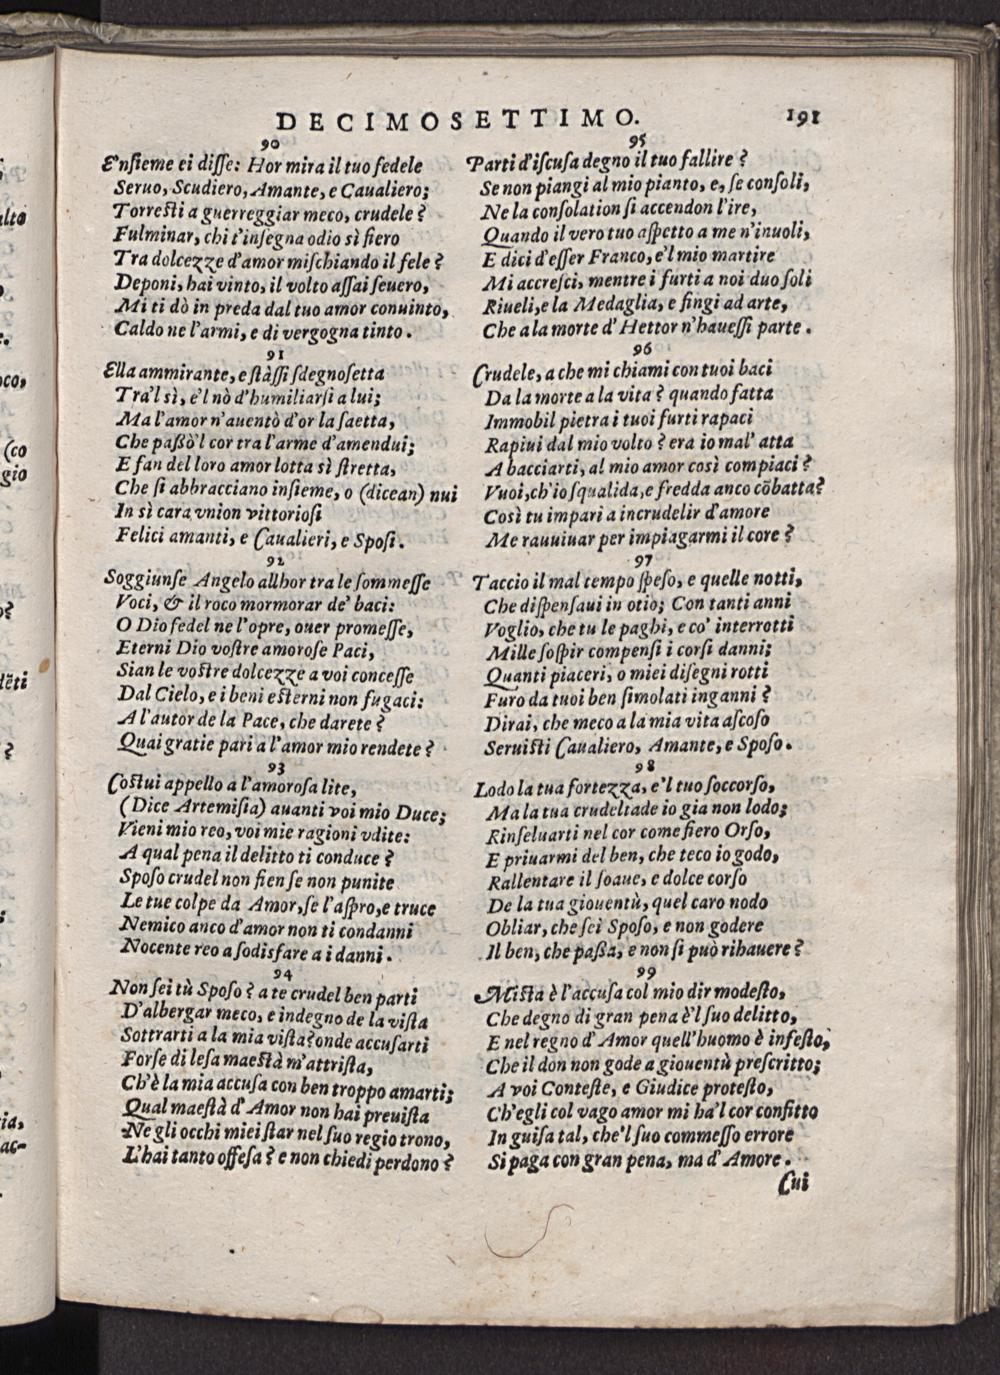 DECIMOSETTIMO. 191
90
E'nſieme ei diſſe: Hor mira il tuo fedele
Seruo, Scudiero, Amante, e Caualiero;
Torreſti a guerreggiar meco, crudele?
Fulminar, chi t'inſegna odio sì fiero
Tra dolcezze d'amor miſchiando il fele?
Deponi, hai vinto, il volto aſſai ſeuero,
Mi ti dò in preda dal tuo amor conuinto,
Caldo ne l'armi, e di vergogna tinto.
91
Ella ammirante, e ſtàſſi ſdegnoſetta
Tra'l sì, e'l nò d'humiliarſi a lui;
Ma l'amor n'auentò d'or la ſaetta,
Che paßò'l cor tra l'arme d'amendui;
E fan del loro amor lotta sì ſtretta,
Che ſi abbracciano inſieme, o (dicean) nui
In sì cara vnion vittorioſi
Felici amanti, e Caualieri, e Sposi.
92
Soggiunſe Angelo allhor tra le ſommeſſe
Voci, & il roco mormorar de' baci:
O Dio fedel ne l'opre, ouer promeſſe,
Eterni Dio voſtre amoroſe Paci,
Sian le voſtre dolcezze a voi conceſſe
Dal Cielo, e i beni eſterni non fugaci:
A l'autor de la Pace, che darete?
Quai gratie pari a l'amor mio rendete?
93
Coſtui appello a l'amoroſa lite,
(Dice Artemiſia) auanti voi mio Duce;
Vieni mio reo, voi mie ragioni vdite:
A qual pena il delitto ti conduce?
Spoſo crudel non fien ſe non punite
Le tue colpe da Amor, ſe l'aſpro, e truce
Nemico anco d'amor non ti condanni
Nocente reo a ſodisfare a i danni.
94
Non ſei tù Spoſo? a te crudel ben parti
D'albergar meco, e indegno de la viſta
Sottrarti a la mia viſta? onde accuſarti
Forſe di leſa maeſtà m'attriſta,
Ch'è la mia accuſa con ben troppo amarti;
Qual maeſtà d'Amor non hai preuiſta
Ne gli occhi miei ſtar nel ſuo regio trono,
L'hai tanto offeſa? e non chiedi perdono?
95
Parti d'iſcuſa degno il tuo fallire?
Se non piangi al mio pianto, e, ſe conſoli,
Ne la conſolation ſi accendon l'ire,
Quando il vero tuo aſpetto a me n'inuoli,
E dici d'eſſer Franco, e'l mio martire
Mi accreſci, mentre i furti a noi duo ſoli
Riueli, e la Medaglia, e fingi ad arte,
Che a la morte d'Hettor n'haueſſi parte.
96
Crudele, a che mi chiami con tuoi baci
Da la morte a la vita? quando fatta
Immobil pietra i tuoi furti rapaci
Rapiui dal mio volto? era io mal' atta
A bacciarti, al mio amor così compiaci?
Vuoi, ch'io ſqualida, e fredda anco cõbatta?
Così tu impari a incrudelir d'amore
Me rauuiuar per impiagarmi il core?
97
Taccio il mal tempo ſpeſo, e quelle notti,
Che diſpenſaui in otio; Con tanti anni
Voglio, che tu le paghi, e co' interrotti
Mille ſoſpir compenſi i corſi danni;
Quanti piaceri, o miei diſegni rotti
Furo da tuoi ben ſimolati inganni?
Dirai, che meco a la mia vita aſcoſo
Seruiſti Caualiero, Amante, e Spoſo.
98
Lodo la tua fortezza, e'l tuo ſoccorſo,
Ma la tua crudeltade io gia non lodo;
Rinſeluarti nel cor come fiero Orſo,
E priuarmi del ben, che teco io godo,
Rallentare il ſoaue, e dolce corſo
De la tua giouentù, quel caro nodo
Obliar, che ſei Spoſo, e non godere
Il ben, che paßa, e non ſi può rihauere?
99
Miſta è l'accuſa col mio dir modeſto,
Che degno di gran pena è'l ſuo delitto,
E nel regno d'Amor quell'huomo è infeſto,
Che il don non gode a giouentù preſcritto;
A voi Conteſte, e Giudice proteſto,
Ch'egli col vago amor mi ha'l cor confitto
In guiſa tal, che'l ſuo commeſſo errore
Si paga con gran pena, ma d'Amore.
Cui